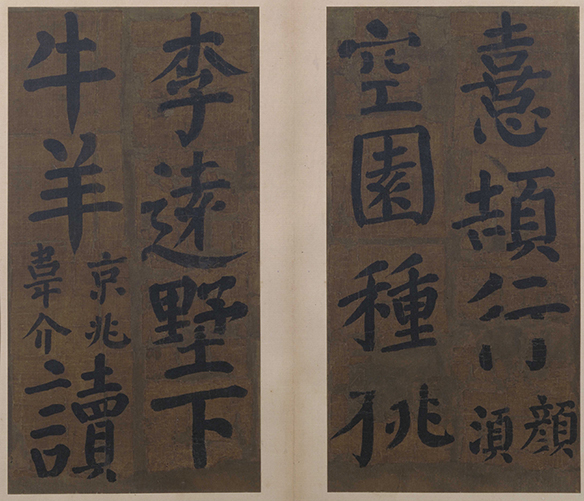 憙頡行顏湏
空園種桃
李遠墅下
牛羊京兆韋介讀